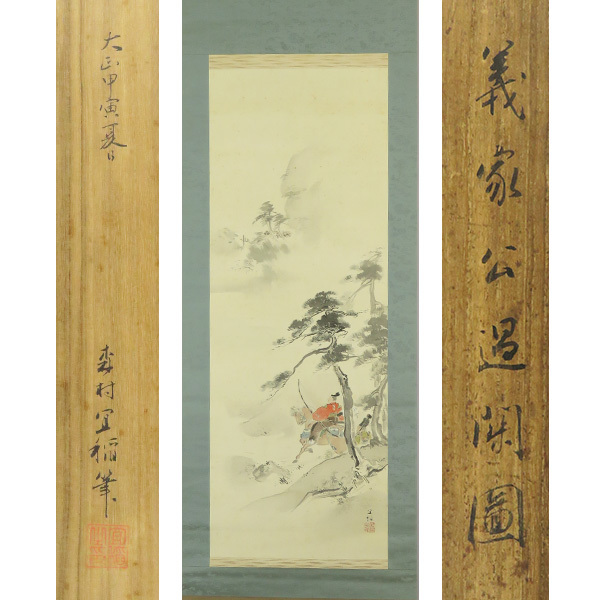 義家公過関圖
大正甲寅夏日
森村宜稲筆